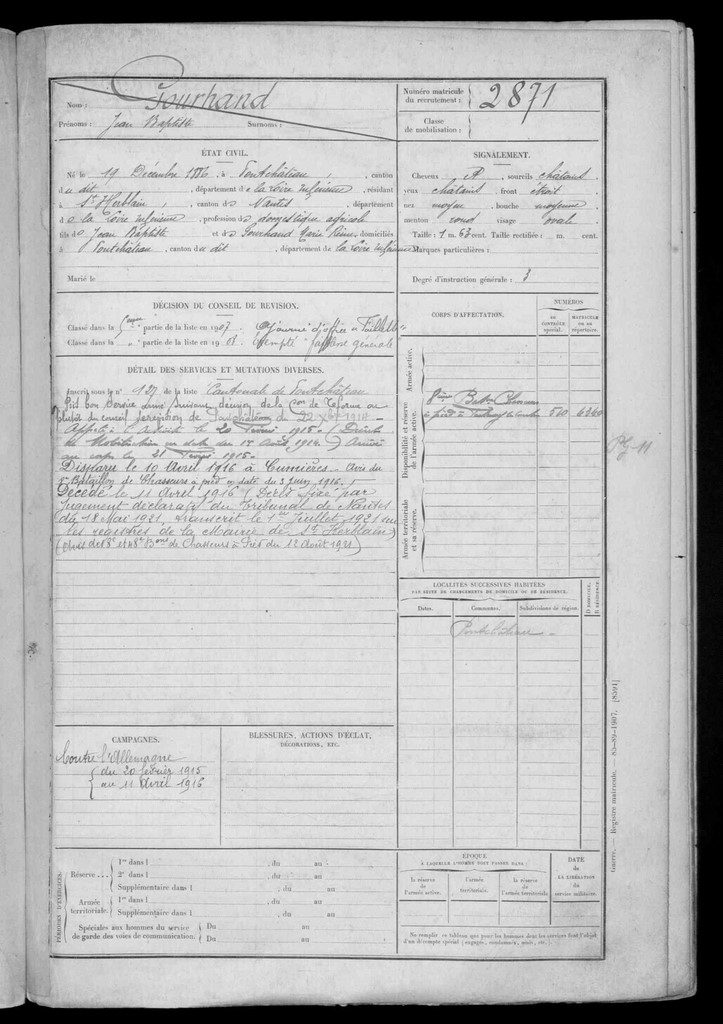 Nom : Gourhand
Prénoms : Jean Baptiste Surnoms :
Numéro matricule
du recrutement : 2871
Classe
de mobilisation :
ÉTAT CIVIL.
Né le 19 Décembre 1886, à Pontchâteau, canton
du dit, département de la Loire Inférieure, résidant
à St Herblain, canton de Nantes, département
de la Loire Inférieure, profession de domestique agricole
fils de Jean Baptiste et de Gourhand Marie, domiciliés
à Pontchâteau, canton du dit, département de la Loire Inférieure
Marié le
SIGNALEMENT.
Cheveux sourcils châtains
yeux châtains, front étroit
nez moyen, bouche moyenne
menton rond visage ovale
Taille : 1 m. 63 cent. Taille rectifiée : m. cent.
Marques particulières :
Degré d'instruction générale : 3
DÉCISION DU CONSEIL DE REVISION.
Classé dans la partie de la liste en 1907. Ajourné d'office "Faiblesse"
Classé dans la " partie de la liste en 1908. Exempté faiblesse générale
DÉTAIL DES SERVICES ET MUTATIONS DIVERSES.
Inscrit sous le n° 127 de la liste Cantonale de Pontchâteau
Pris bon Service armé Suivant décision de la Con de Réforme ou
plutôt du conseil de revision de Pontchâteau du Xbre 1914
Appelé à l'activité le 20 Février 1915. Décret
de Mobilisation en date du 1er Août 1914. Arrivé
au corps le 21
Disparu le 10 Avril 1916 à Cumières. Avis du
Bataillon de Chasseurs à pied en date du 3 Juin 1916.
Décédé le 11 Avril 1916 (Décès fixé par
Jugement déclaratif du Tribunal de Nantes
du 18 Mai 1921, transcrit le 1er Juillet 1921 sur
les registres de la Mairie de St Herblain)
(Avis des 8e et 48e Bons de Chasseurs à Pied du 12 Août 1921)
CORPS D'AFFECTATION.
NUMÉROS
AU CONTRÔLE spécial.
MATRICULE OU AU répertoire.
Armée active.
Disponibilité et réserve de l'armée active.
8ème Baton Chasseurs
à pied 6340
Armée territoriale et sa réserve.
Pl. 11
LOCALITÉS SUCCESSIVES HABITÉES
PAR SUITE DE CHANGEMENTS DE DOMICILE OU DE RÉSIDENCE.
Dates. Communes. Subdivisions de région. D DOMICILE. R RÉSIDENCE.
Pontchâteau
CAMPAGNES.
Contre l'Allemagne
du 20 février 1915
au 11 Avril 1916
BLESSURES, ACTIONS D'ÉCLAT,
DÉCORATIONS, ETC.
PÉRIODES D'EXERCICES.
Réserve . . . 1re dans l , du au .
2e dans l , du au .
Supplémentaire dans l , du au .
Armée territoriale. 1re dans l , du au .
Supplémentaire dans l , du au .
Spéciales aux hommes du service
de garde des voies de communication. Du au .
Du au .
ÉPOQUE
À LAQUELLE L'HOMME DOIT PASSER DANS :
la réserve de l'armée active.
l'armée territoriale.
la réserve de l'armée territoriale.
DATE
DE LA LIBÉRATION
du
service militaire.
Ne remplir ce tableau que pour les hommes dont les services font l'objet
d'un décompte spécial (engagés, condamnés, omis, etc.).
Guerre. — Registre matricule. — 85-89-1907. [8591]